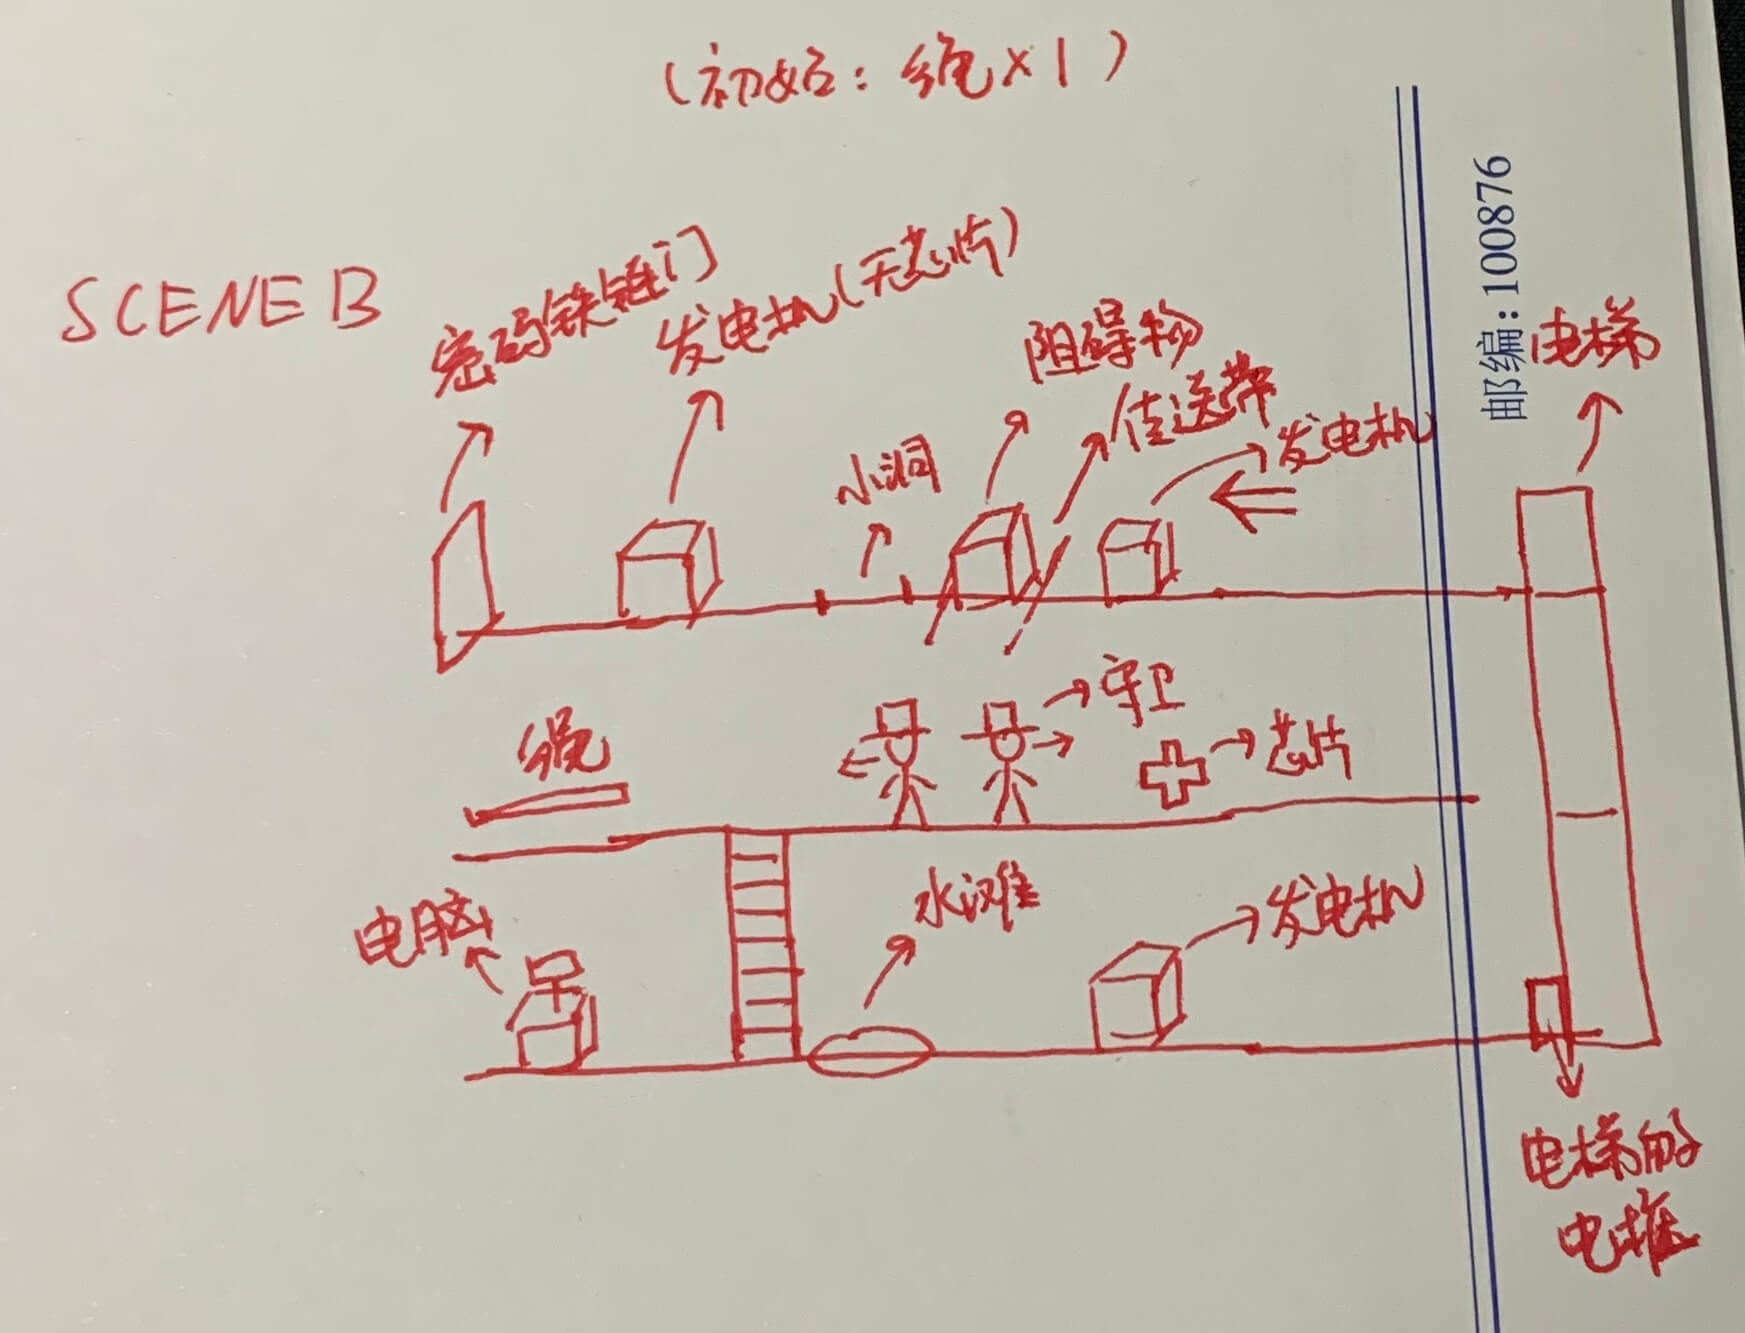 (初始：绳×1)
SCENE B
密码铁链门
发电机(无芯片)
小洞
阻碍物
传送带
发电机
邮编：100876
电梯
绳
守卫
芯片
电脑
水滩
发电机
电梯的